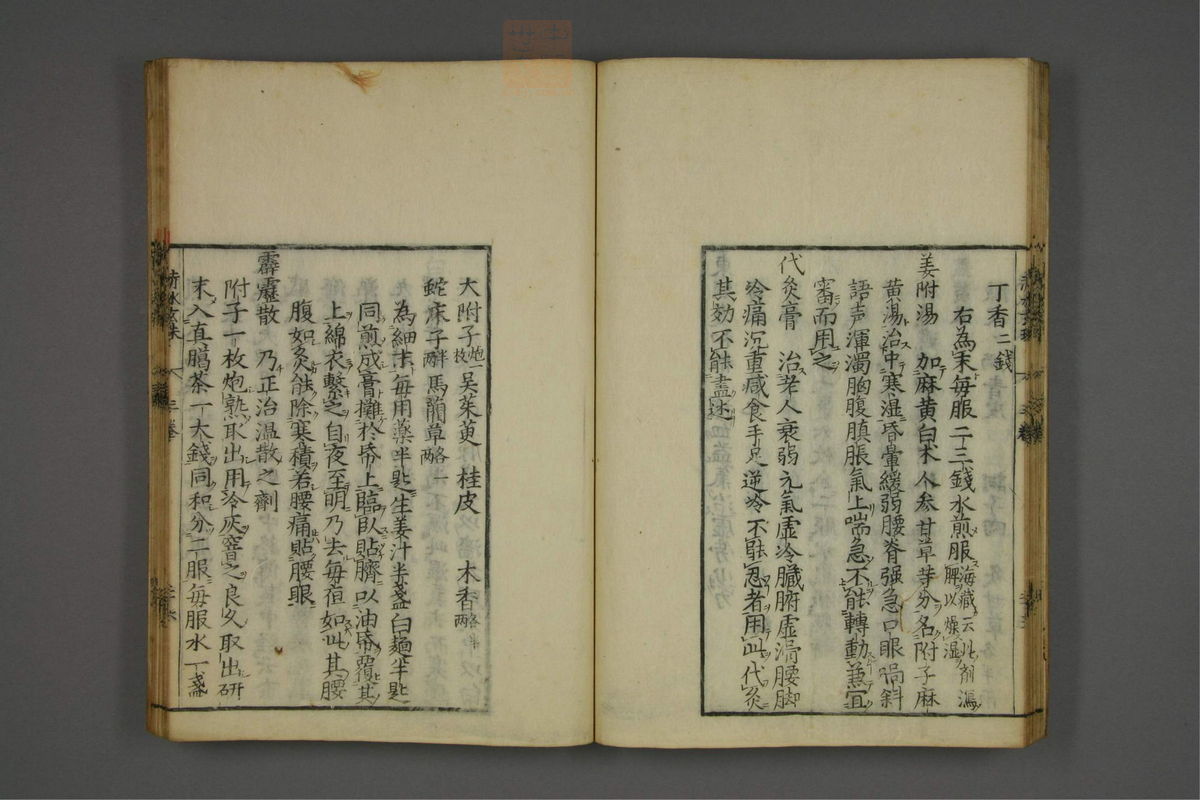 丁香二錢
右為末毎服二三錢水煎服海藏云此剤瀉脾以燥湿
姜附湯　加麻黄白朮人参甘草等分名附子麻
黄湯治中寒湿昏暈緩弱腰脊强急口眼喎斜
語声渾濁胸腹䐜脹氣上喘急不能轉動兼宜
審而用之
代灸膏　治老人衰弱元氣虚冷臓腑虚滑腰脚
冷痛沉重減食手足逆冷不能忍者用此代灸
其効不能盡述
大附子炮一枚吴茱萸　桂皮　木香各半両
蛇床子半両馬藺草各一両
為細末毎用藥半匙生姜汁半盞白麺半匙
同煎成膏攤於帋上臨臥貼臍以油帋覆其
上綿衣繋之自夜至明乃去毎夜如此其腰
腹如灸能除寒積若腰痛貼腰眼
霹靂散　乃正治温散之劑
附子一枚炮熟取出用冷灰窨之良久取出研
末入真臈茶一大錢同和分二服毎服水一盞